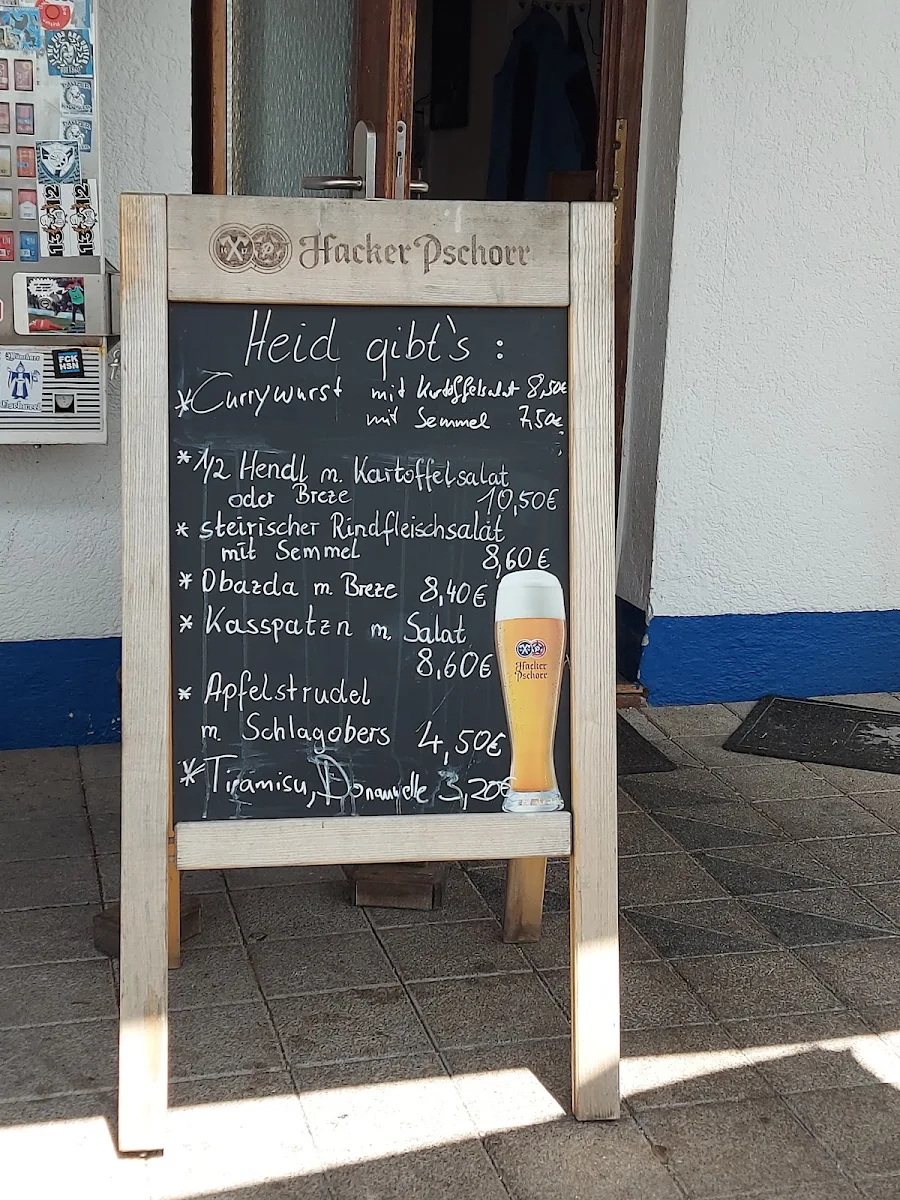 Hacker Pschorr
Heid gibt's :
* Currywurst mit Kartoffelsalat 8,50€
mit Semmel 7,50€
* 1/2 Hendl m. Kartoffelsalat
oder Breze 10,50€
* steirischer Rindfleischsalat
mit Semmel 8,60€
* Obazda m. Breze 8,40€
* Kasspatzn m. Salat
8,60€
* Apfelstrudel
m. Schlagobers 4,50€
* Tiramisu, Donauwelle 3,20€
Hacker
Pschorr
FCK
HSN
13 12
13 12